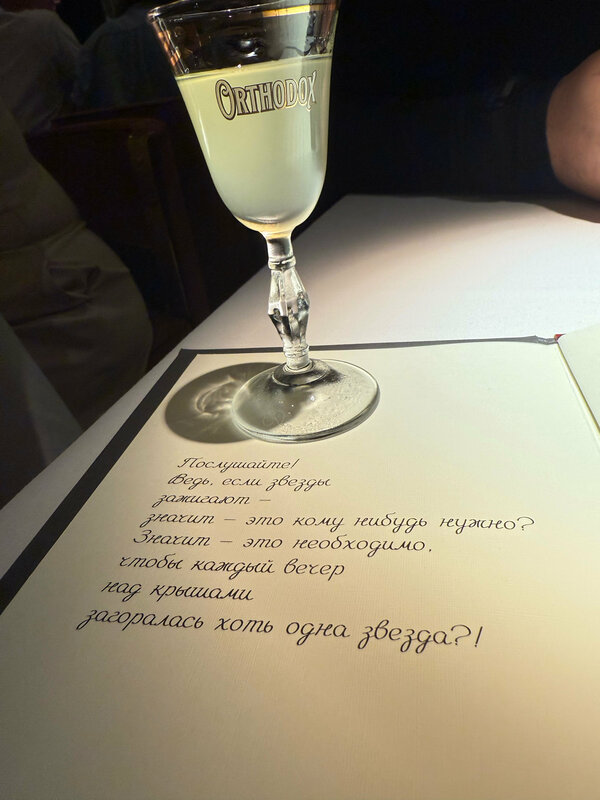 ORTHODOX
Послушайте!
Ведь, если звезды
зажигают –
значит – это кому нибудь нужно?
Значит – это необходимо,
чтобы каждый вечер
над крышами
загоралась хоть одна звезда?!